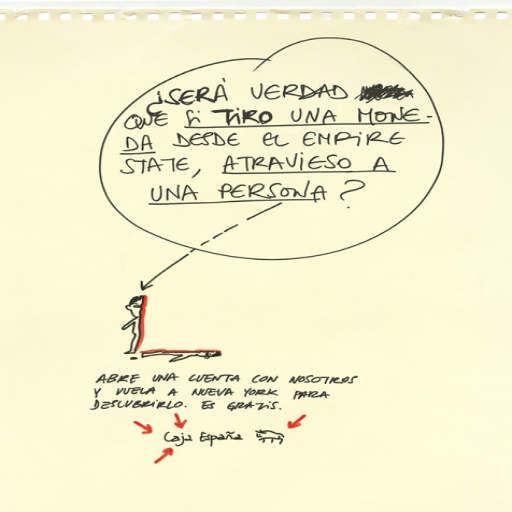 ¿SERÁ VERDAD
QUE SI TIRO UNA MONE-
DA DESDE EL EMPIRE
STATE, ATRAVIESO A
UNA PERSONA?
ABRE UNA CUENTA CON NOSOTROS
Y VUELA A NUEVA YORK PARA
DESCUBRIRLO. ES GRATIS.
Caja España